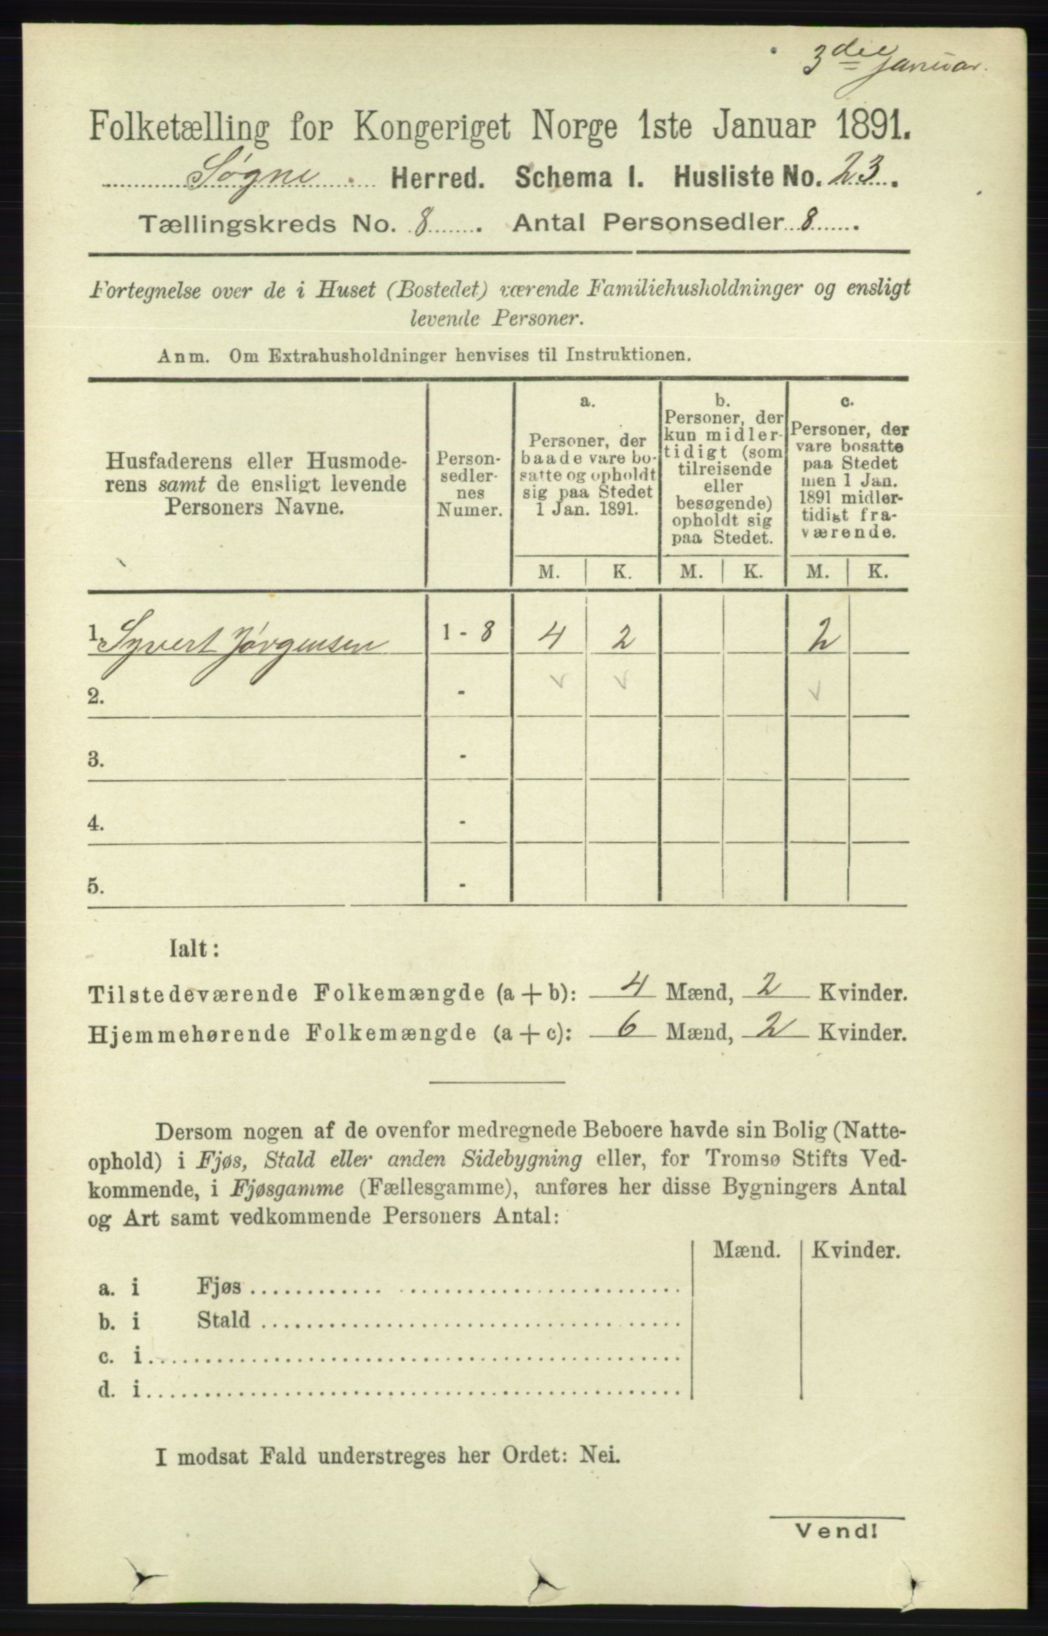 3die Januar.
Folketælling for Kongeriget Norge 1ste Januar 1891.
Søgne Herred. Schema I. Husliste No. 23.
Tællingskreds No. 8. Antal Personsedler 8.
Fortegnelse over de i Huset (Bostedet) værende Familiehusholdninger og ensligt
levende Personer.
Anm. Om Extrahusholdninger henvises til Instruktionen.
Husfaderens eller Husmode-
rens samt de ensligt levende
Personers Navne.
Person-
sedler-
nes
Numer.
a.
Personer, der
baade vare bo-
satte og opholdt
sig paa Stedet
1 Jan. 1891.
b.
Personer, der
kun midler-
tidigt (som
tilreisende
eller
besøgende)
opholdt sig
paa Stedet.
c.
Personer, der
vare bosatte
paa Stedet
men 1 Jan.
1891 midler-
tidigt fra-
værende.
M. K. M. K. M. K.
1. Syvert Jørgensen 1 - 8 4 2 2
2. -
3. -
4. -
5. -
Ialt:
Tilstedeværende Folkemængde (a + b): 4 Mænd, 2 Kvinder.
Hjemmehørende Folkemængde (a + c): 6 Mænd, 2 Kvinder.
Dersom nogen af de ovenfor medregnede Beboere havde sin Bolig (Natte-
ophold) i Fjøs, Stald eller anden Sidebygning eller, for Tromsø Stifts Ved-
kommende, i Fjøsgamme (Fællesgamme), anføres her disse Bygningers Antal
og Art samt vedkommende Personers Antal:
Mænd. Kvinder.
a. i Fjøs
b. i Stald
c. i
d. i
I modsat Fald understreges her Ordet: Nei.
Vend!